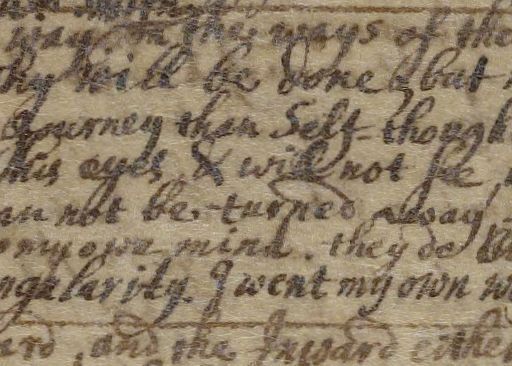 way in the ways of the
thy will be done, but
Journey then Self-though
his eyes, & will not be
not be turned away
my own mind. they do
ngularity. I went my own w
ard, and the Inward either